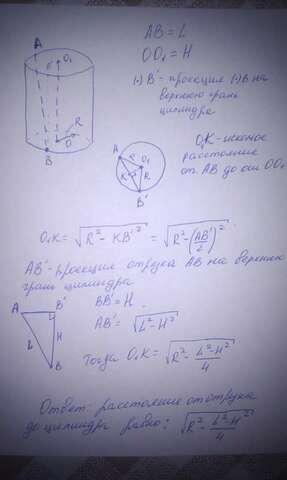 AB = L
OO₁ = H
(·) B' - проекция (·) B на
верхнюю грань
цилиндра
A
O₁
R
O
B
O₁K - искомое
расстояние
от AB до оси OO₁
A
O₁
K
R
B'
O₁K = √(R² - KB'²) = √(R² - (AB'/2)²)
AB' - проекция отрезка AB на верхнюю
грань цилиндра
A B'
L H
B
BB' = H
AB' = √(L² - H²)
Тогда O₁K = √(R² - (L² - H²)/4)
Ответ: расстояние от отрезка
до цилиндра равно: √(R² - (L² - H²)/4)